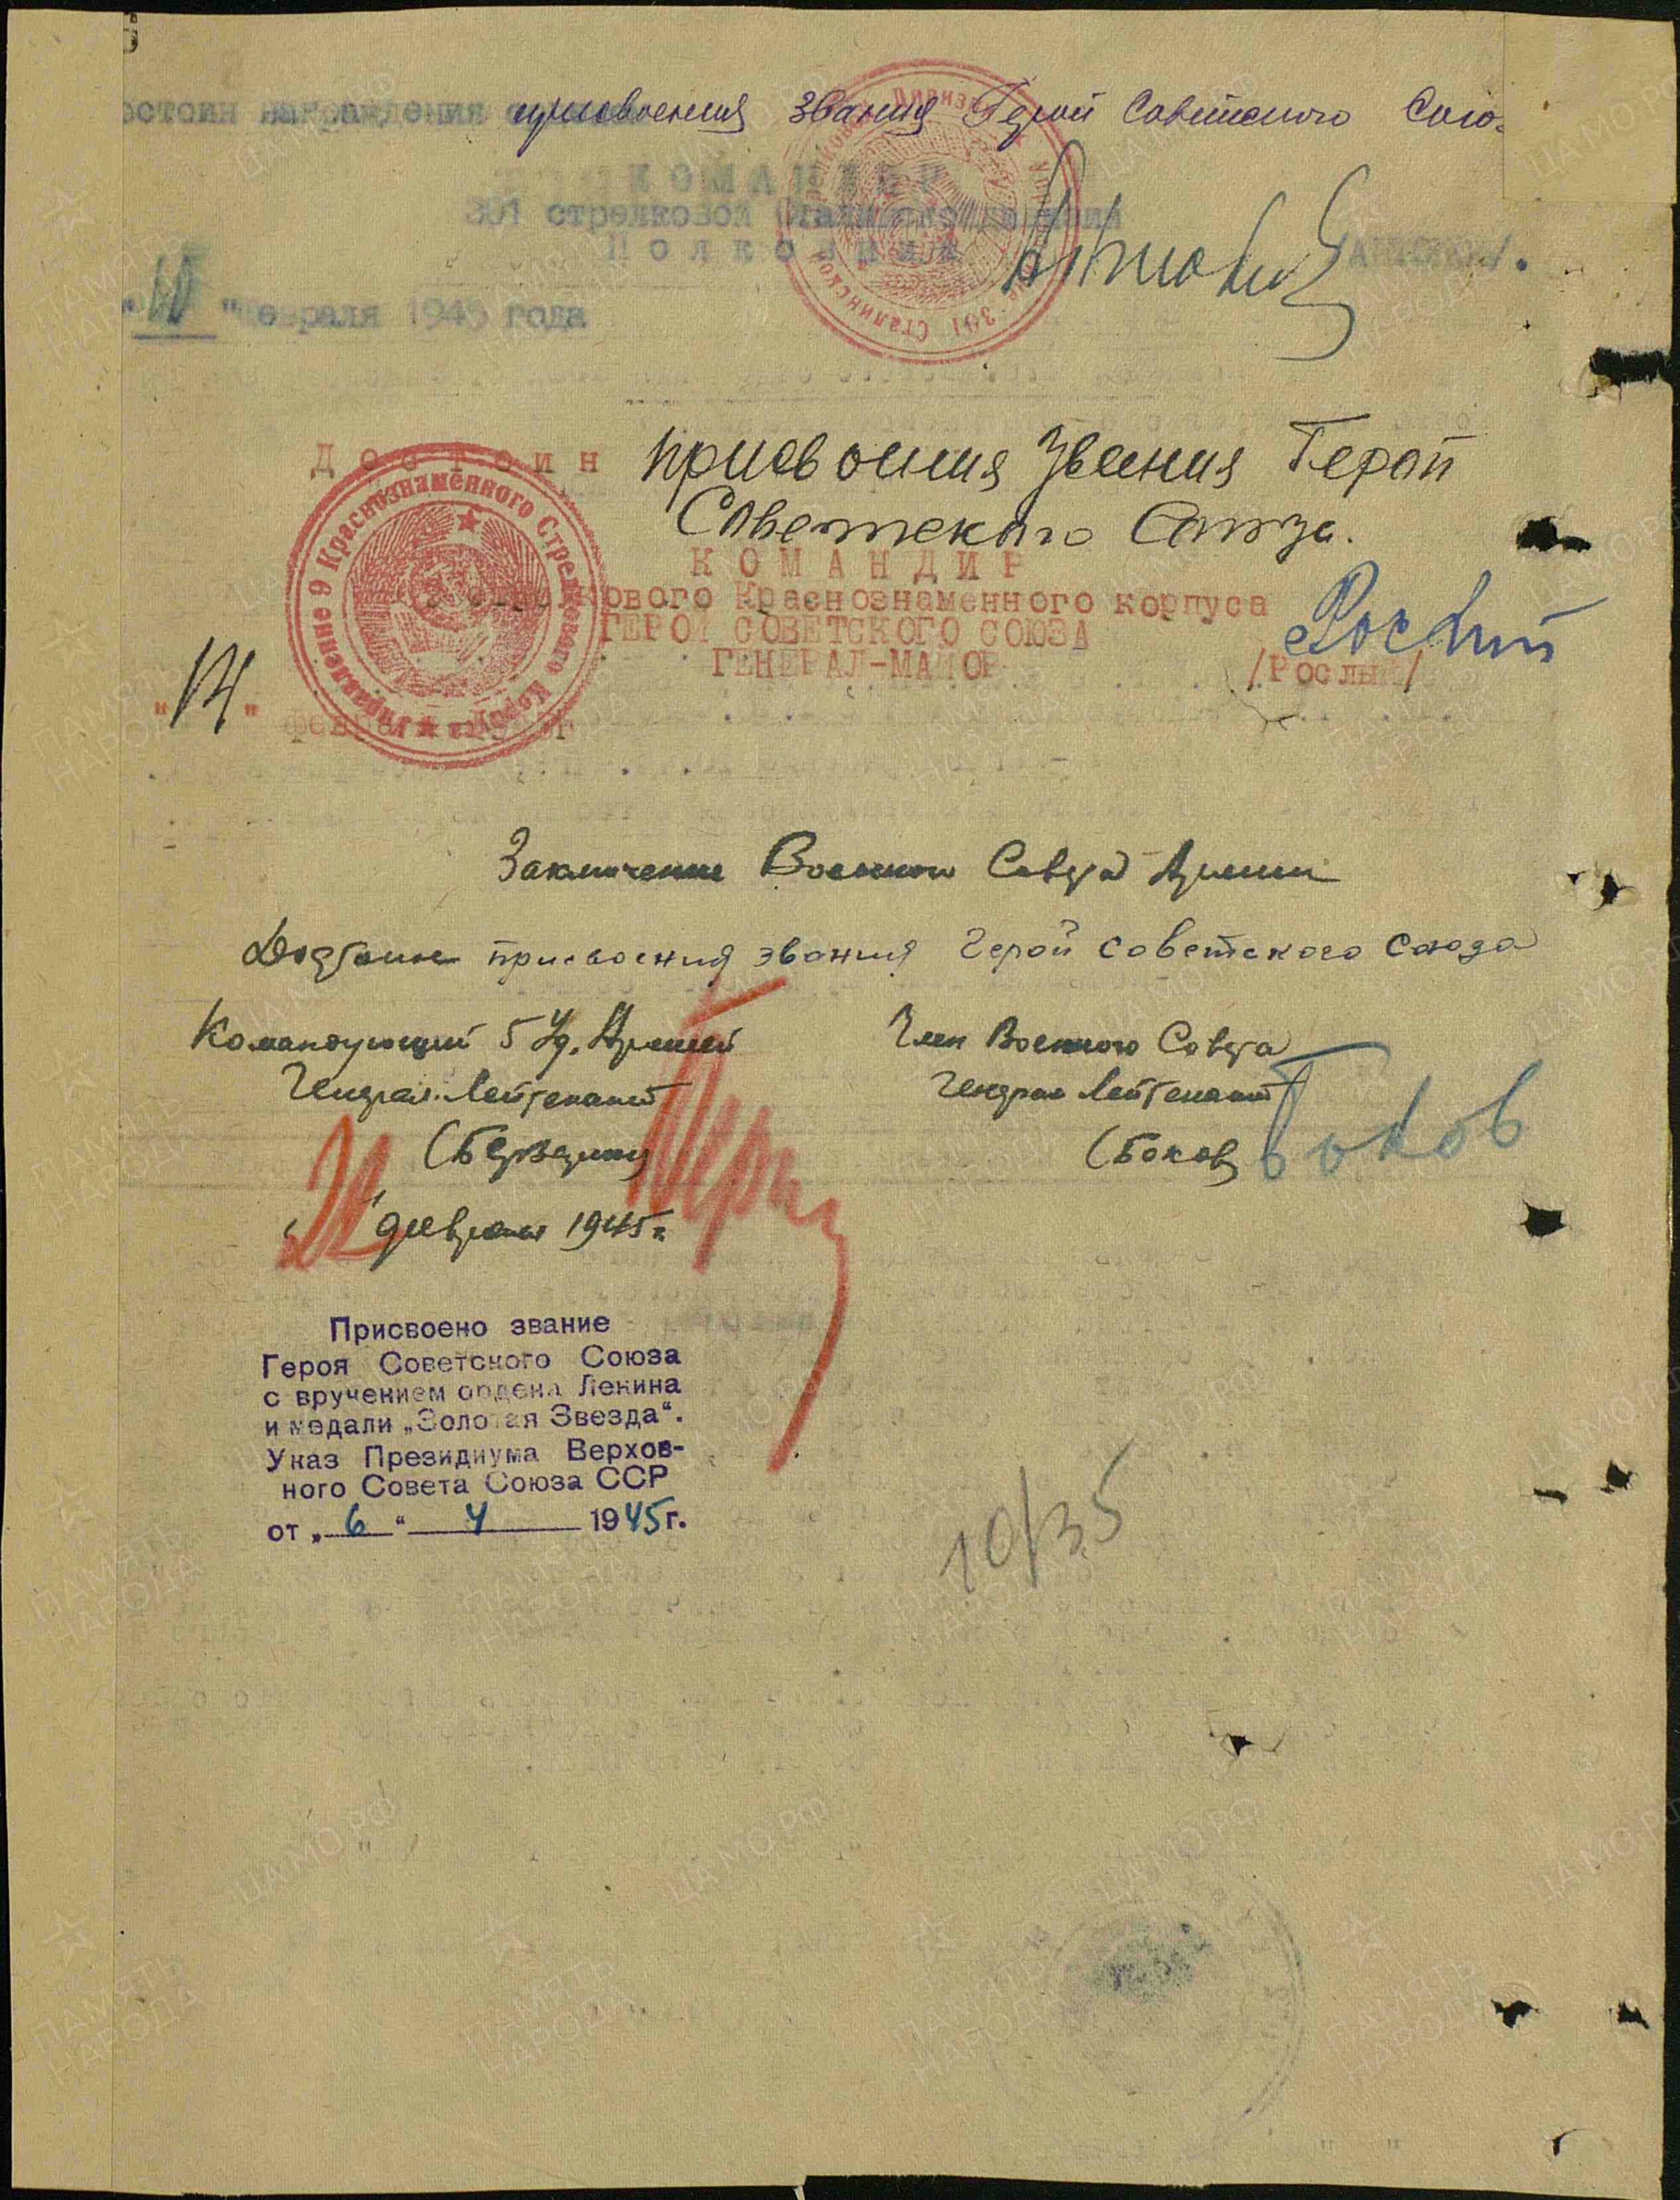 достоин награждения присвоения звания Герой Советского Сою-
КОМАНДИР
301 стрелковой Сталинской дивизии
Полковник Антонов /АНТОНОВ/.
"10" февраля 1945 года
Достоин присвоения Звания Герой
Советского Союза.
КОМАНДИР
кового Краснознаменного корпуса
ГЕРОЙ СОВЕТСКОГО СОЮЗА
ГЕНЕРАЛ-МАЙОР /Рослый/
"14" февраля
Управление 9 Краснознамённого Стрелкового Корпуса
Заключение Военного Совета Армии
Достоин присвоения звания Герой Советского Союза
Командующий 5 Уд. Армией
Генерал-Лейтенант
(Берзарин)
Член Военного Совета
Генерал Лейтенант
(Боков) Боков
февраля 1945 г.
Присвоено звание
Героя Советского Союза
с вручением ордена Ленина
и медали „Золотая Звезда“.
Указ Президиума Верхов-
ного Совета Союза ССР
от „6“ 4 1945 г.
10/35
ПАМЯТЬ НАРОДА
ЦАМО.РФ